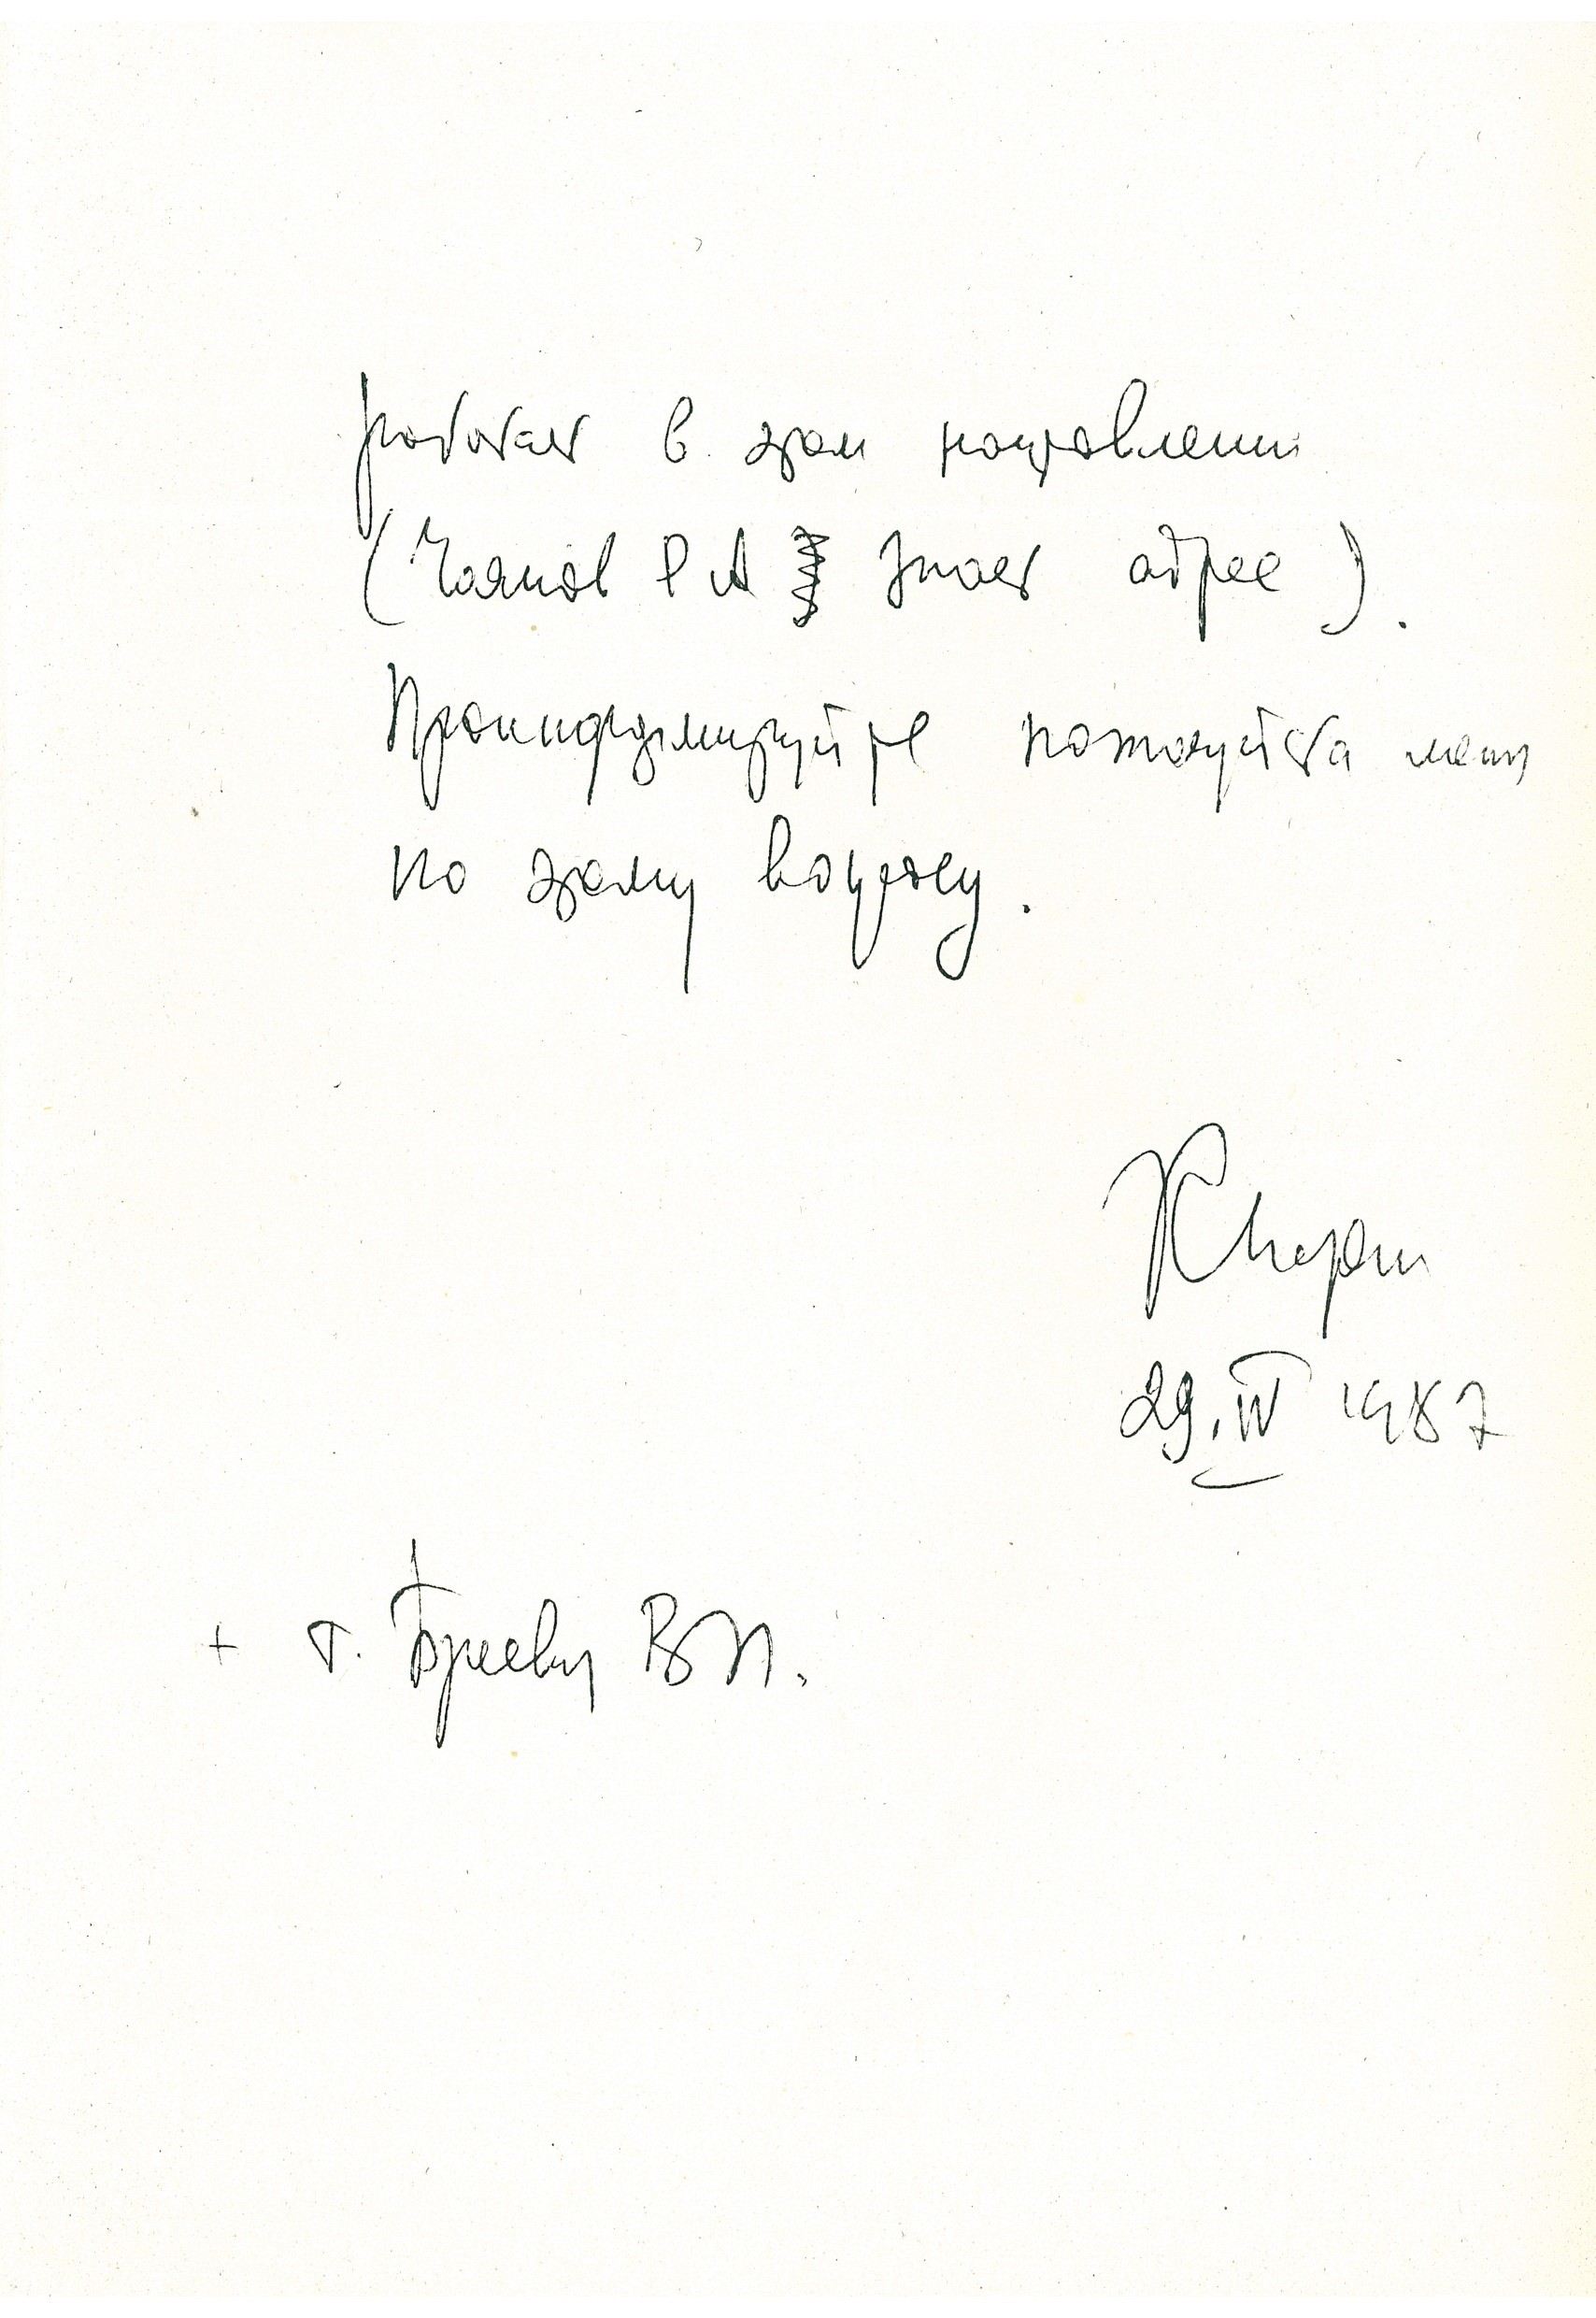 работает в этом направлении
(Чаянов С А знает адрес).
Проинформируйте пожалуйста меня
по этому вопросу.
29.IV 1987
+ т. Брееву ВП.